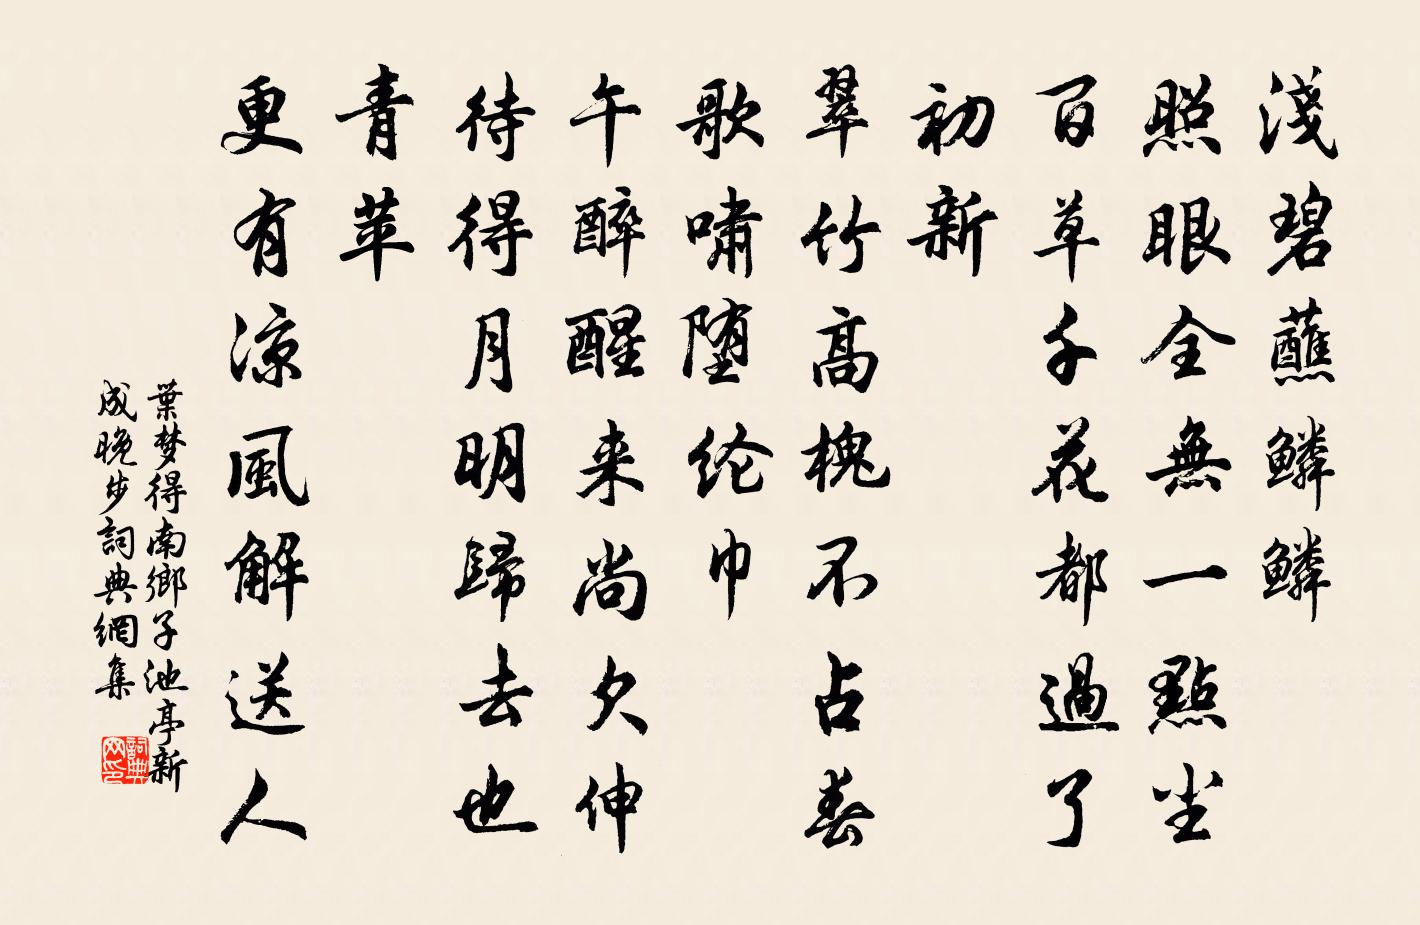 淺碧蘸鱗鱗
照眼全無一點尘
百草千花都過了
初新
翠竹高槐不占春
歌嘯堕纶巾
午醉醒来尚欠伸
待得月明歸去也
青苹
更有凉風解送人
葉梦得南鄉子池亭新
成晚步詞典網集
詞典网印